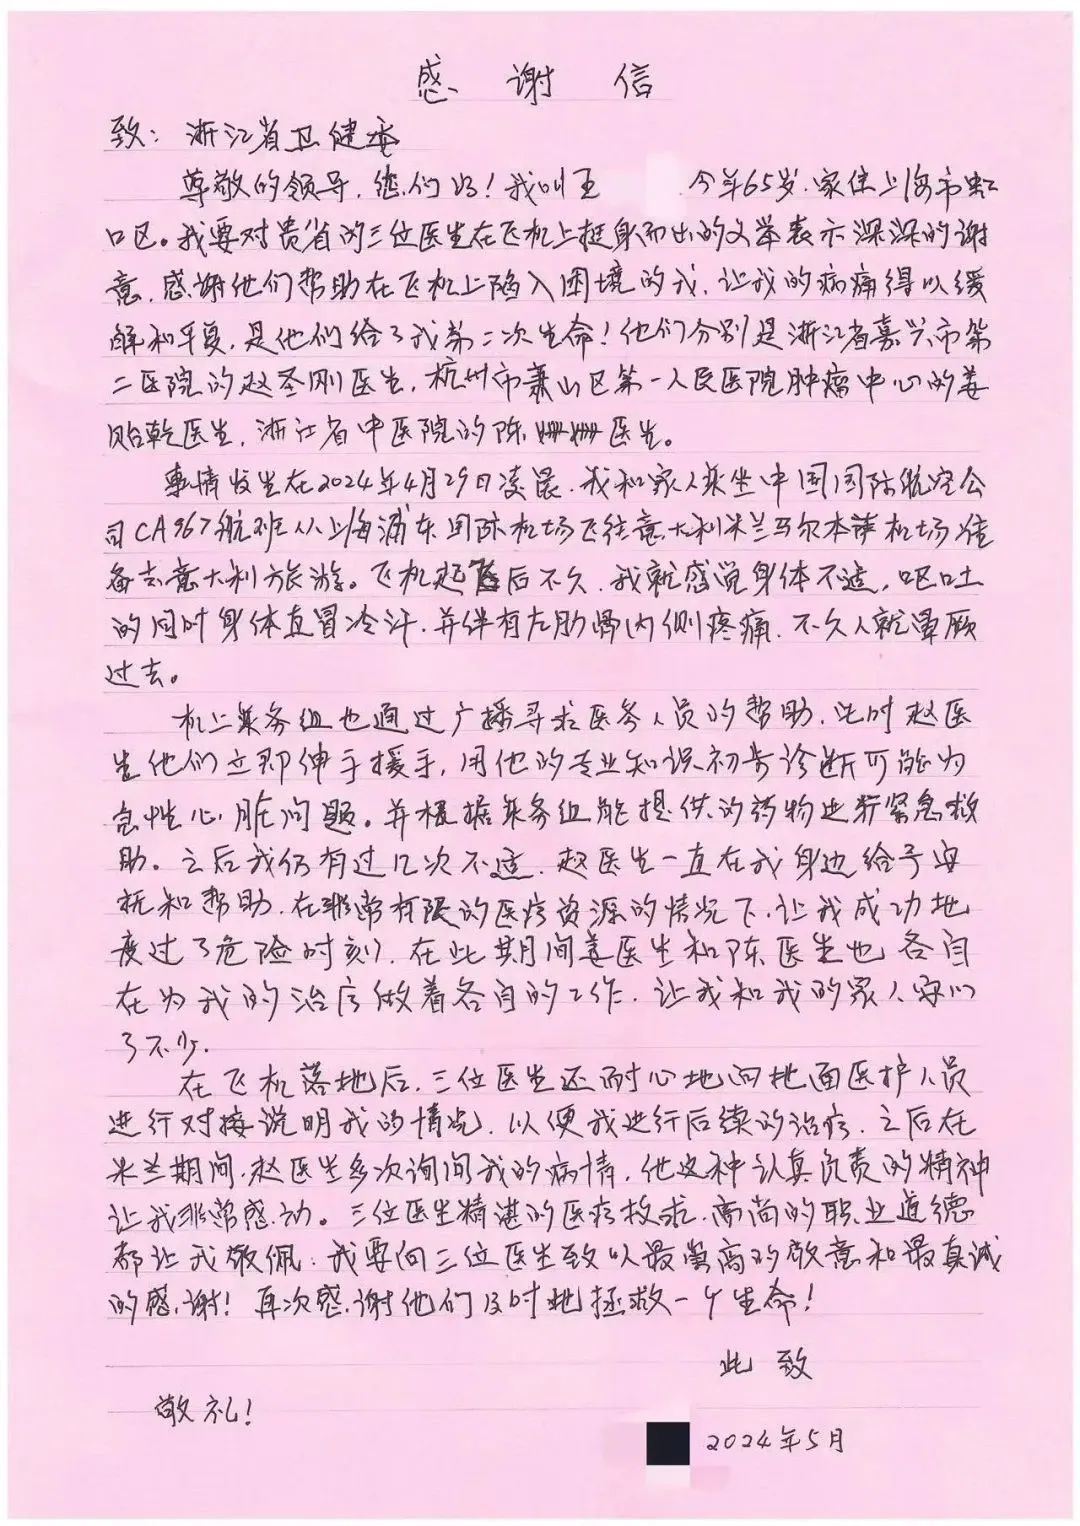 感谢信
致：浙江省卫健委
尊敬的领导，您们好！我叫王 今年65岁.家住上海市虹
口区。我要对贵省的三位医生在飞机上挺身而出的义举表示深深的谢
意.感谢他们帮助在飞机上陷入困境的我.让我的病痛得以缓
解和平复.是他们给了我第二次生命！他们分别是浙江省嘉兴市第
二医院的赵圣刚医生,杭州市萧山区第一人民医院肿瘤中心的姜
贻乾医生,浙江省中医院的陈姗姗医生。
事情发生在2024年4月29日凌晨.我和家人乘坐中国国际航空公
司CA967航班从上海浦东国际机场飞往意大利米兰马尔本萨机场准
备去意大利旅游。飞机起飞后不久.我就感觉身体不适,呕吐
的同时身体直冒冷汗.并伴有左肋骨内侧疼痛.不久人就晕厥
过去。
机上乘务组也通过广播寻求医务人员的帮助.此时赵医
生他们立即伸手援手,用他的专业知识初步诊断可能为
急性心脏问题。并根据乘务组能提供的药物进行紧急救
助。之后我仍有过几次不适.赵医生一直在我身边给予安
抚和帮助.在非常有限的医疗资源的情况下.让我成功地
度过了危险时刻.在此期间姜医生和陈医生也各自
在为我的治疗做着各自的工作.让我和我的家人安心
了不少.
在飞机落地后.三位医生还耐心地向地面医护人员
进行对接说明我的情况.以便我进行后续的治疗.之后在
米兰期间.赵医生多次询问我的病情.他这种认真负责的精神
让我非常感动。三位医生精湛的医疗救求.高尚的职业道德
都让我敬佩.我要向三位医生致以最崇高的敬意和最真诚
的感谢！再次感谢他们及时地拯救一个生命！
此致
敬礼！
2024年5月